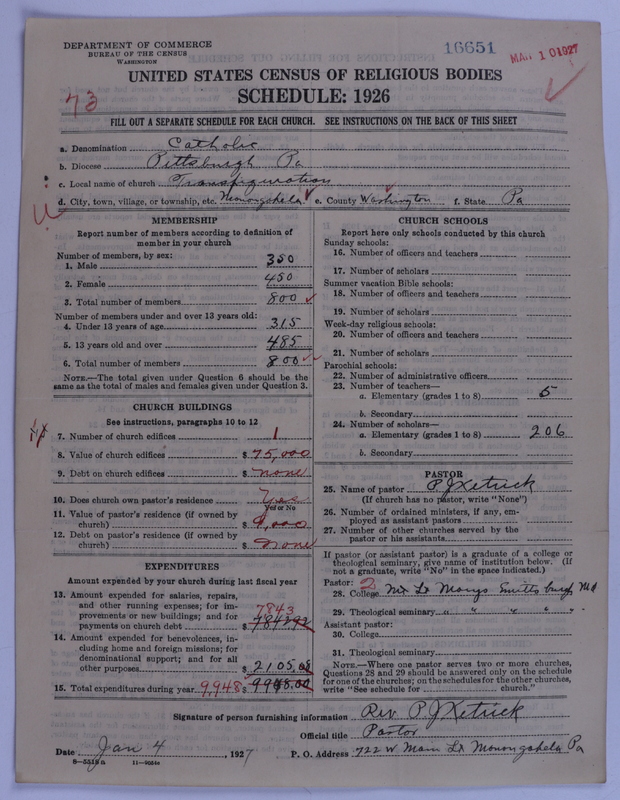 DEPARTMENT OF COMMERCE
BUREAU OF THE CENSUS
WASHINGTON
16651
MAR 10 1927
UNITED STATES CENSUS OF RELIGIOUS BODIES
SCHEDULE: 1926
73
FILL OUT A SEPARATE SCHEDULE FOR EACH CHURCH. SEE INSTRUCTIONS ON THE BACK OF THIS SHEET
a. Denomination Catholic
b. Diocese Pittsburgh Pa
c. Local name of church Transfiguration
d. City, town, village, or township, etc. Monongahela e. County Washington f. State Pa
MEMBERSHIP
Report number of members according to definition of
member in your church
Number of members, by sex:
1. Male 350
2. Female 450
3. Total number of members 800
Number of members under and over 13 years old:
4. Under 13 years of age 315
5. 13 years old and over 485
6. Total number of members 800
NOTE.—The total given under Question 6 should be the
same as the total of males and females given under Question 3.
CHURCH BUILDINGS
See instructions, paragraphs 10 to 12
7. Number of church edifices 1
8. Value of church edifices $ 75,000
9. Debt on church edifices $ none
10. Does church own pastor's residence Yes
Yes or No
11. Value of pastor's residence (if owned by
church) $ 9,000
12. Debt on pastor's residence (if owned by
church) $ none
EXPENDITURES
Amount expended by your church during last fiscal year
13. Amount expended for salaries, repairs,
and other running expenses; for im-
provements or new buildings; and for
payments on church debt 7843 $ 7842.92
14. Amount expended for benevolences, in-
cluding home and foreign missions; for
denominational support; and for all
other purposes $ 2105.08
15. Total expenditures during year 9,948 $ 9948.00
CHURCH SCHOOLS
Report here only schools conducted by this church
Sunday schools:
16. Number of officers and teachers
17. Number of scholars
Summer vacation Bible schools:
18. Number of officers and teachers
19. Number of scholars
Week-day religious schools:
20. Number of officers and teachers
21. Number of scholars
Parochial schools:
22. Number of administrative officers
23. Number of teachers—
a. Elementary (grades 1 to 8) 5
b. Secondary
24. Number of scholars—
a. Elementary (grades 1 to 8) 206
b. Secondary
PASTOR
25. Name of pastor P J Ketrick
(If church has no pastor, write "None")
26. Number of ordained ministers, if any, em-
ployed as assistant pastors
27. Number of other churches served by the
pastor or his assistants
If pastor (or assistant pastor) is a graduate of a college or
theological seminary, give name of institution below. (If
not a graduate, write "No" in the space indicated.)
Pastor: 2
28. College Mt St Marys Emittsburg Md
29. Theological seminary " " " " "
Assistant pastor:
30. College
31. Theological seminary
NOTE.—Where one pastor serves two or more churches,
Questions 28 and 29 should be answered only on the schedule
for one of the churches; on the schedules for the other churches,
write "See schedule for church."
Signature of person furnishing information Rev P J Ketrick
Official title Pastor
Date Jan 4, 1927 P. O. Address 722 W Main St Monongahela Pa